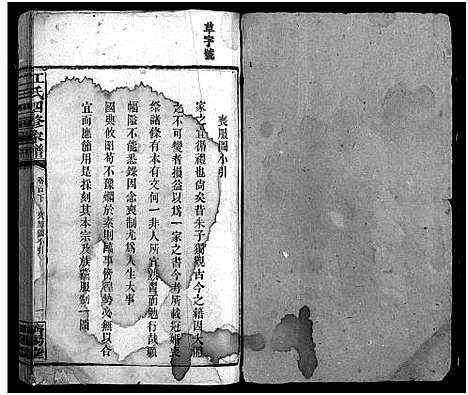 草字號
喪服圖小引
家之宜循禮也尚矣昔朱子獨觀古今之籍因大體
之不可變者損益以爲一家之書今考所載冠婚喪
祭諸條有本有文何一非人所宜熟習而勉行哉顧
幅隘不能悉錄因念喪制尤爲人生大事
國典攸昭苟不豫嫺於素則臨事徬徨勢必無以合
宜而應節用是採刻其本宗及族黨服制一圖
江氏四修家譜
卷之下 喪服圖小引 一